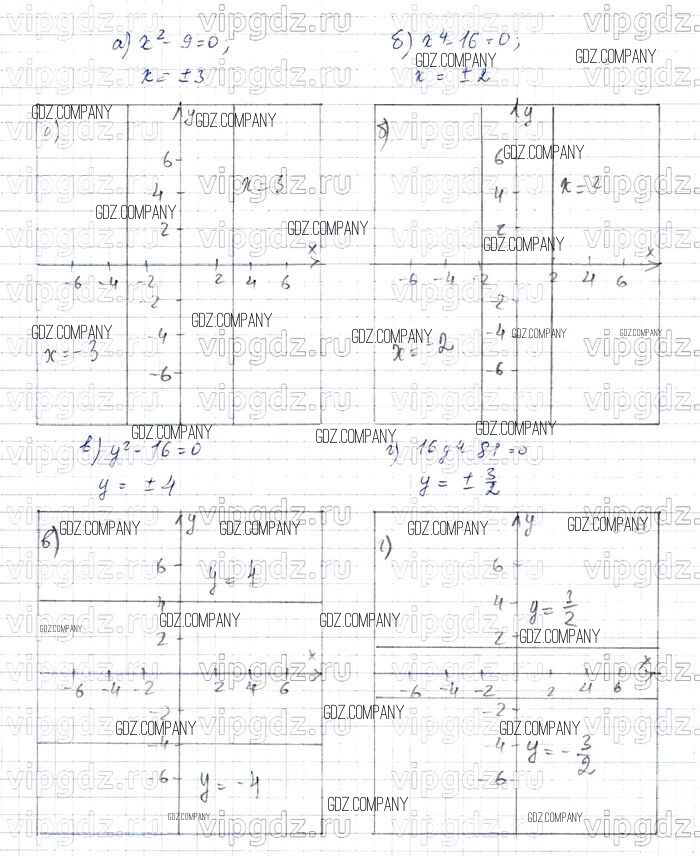 а) x² - 9 = 0;
x = ±3
б) x⁴ - 16 = 0;
x = ±2
а)
y
6
4
2
x = 3
x
-6 -4 -2 2 4 6
-2
-4
-6
x = -3
б)
y
6
4
2
x = 2
x
-6 -4 -2 2 4 6
-2
-4
-6
x = -2
в) y² - 16 = 0
y = ±4
г) 16y⁴ - 81 = 0
y = ± 3/2
в)
y
y = 4
6
4
2
x
-6 -4 -2 2 4 6
-2
-4
-6
y = -4
г)
y
6
4
2
y = 3/2
x
-6 -4 -2 2 4 6
-2
-4
-6
y = - 3/2
vipgdz.ru
GDZ.COMPANY